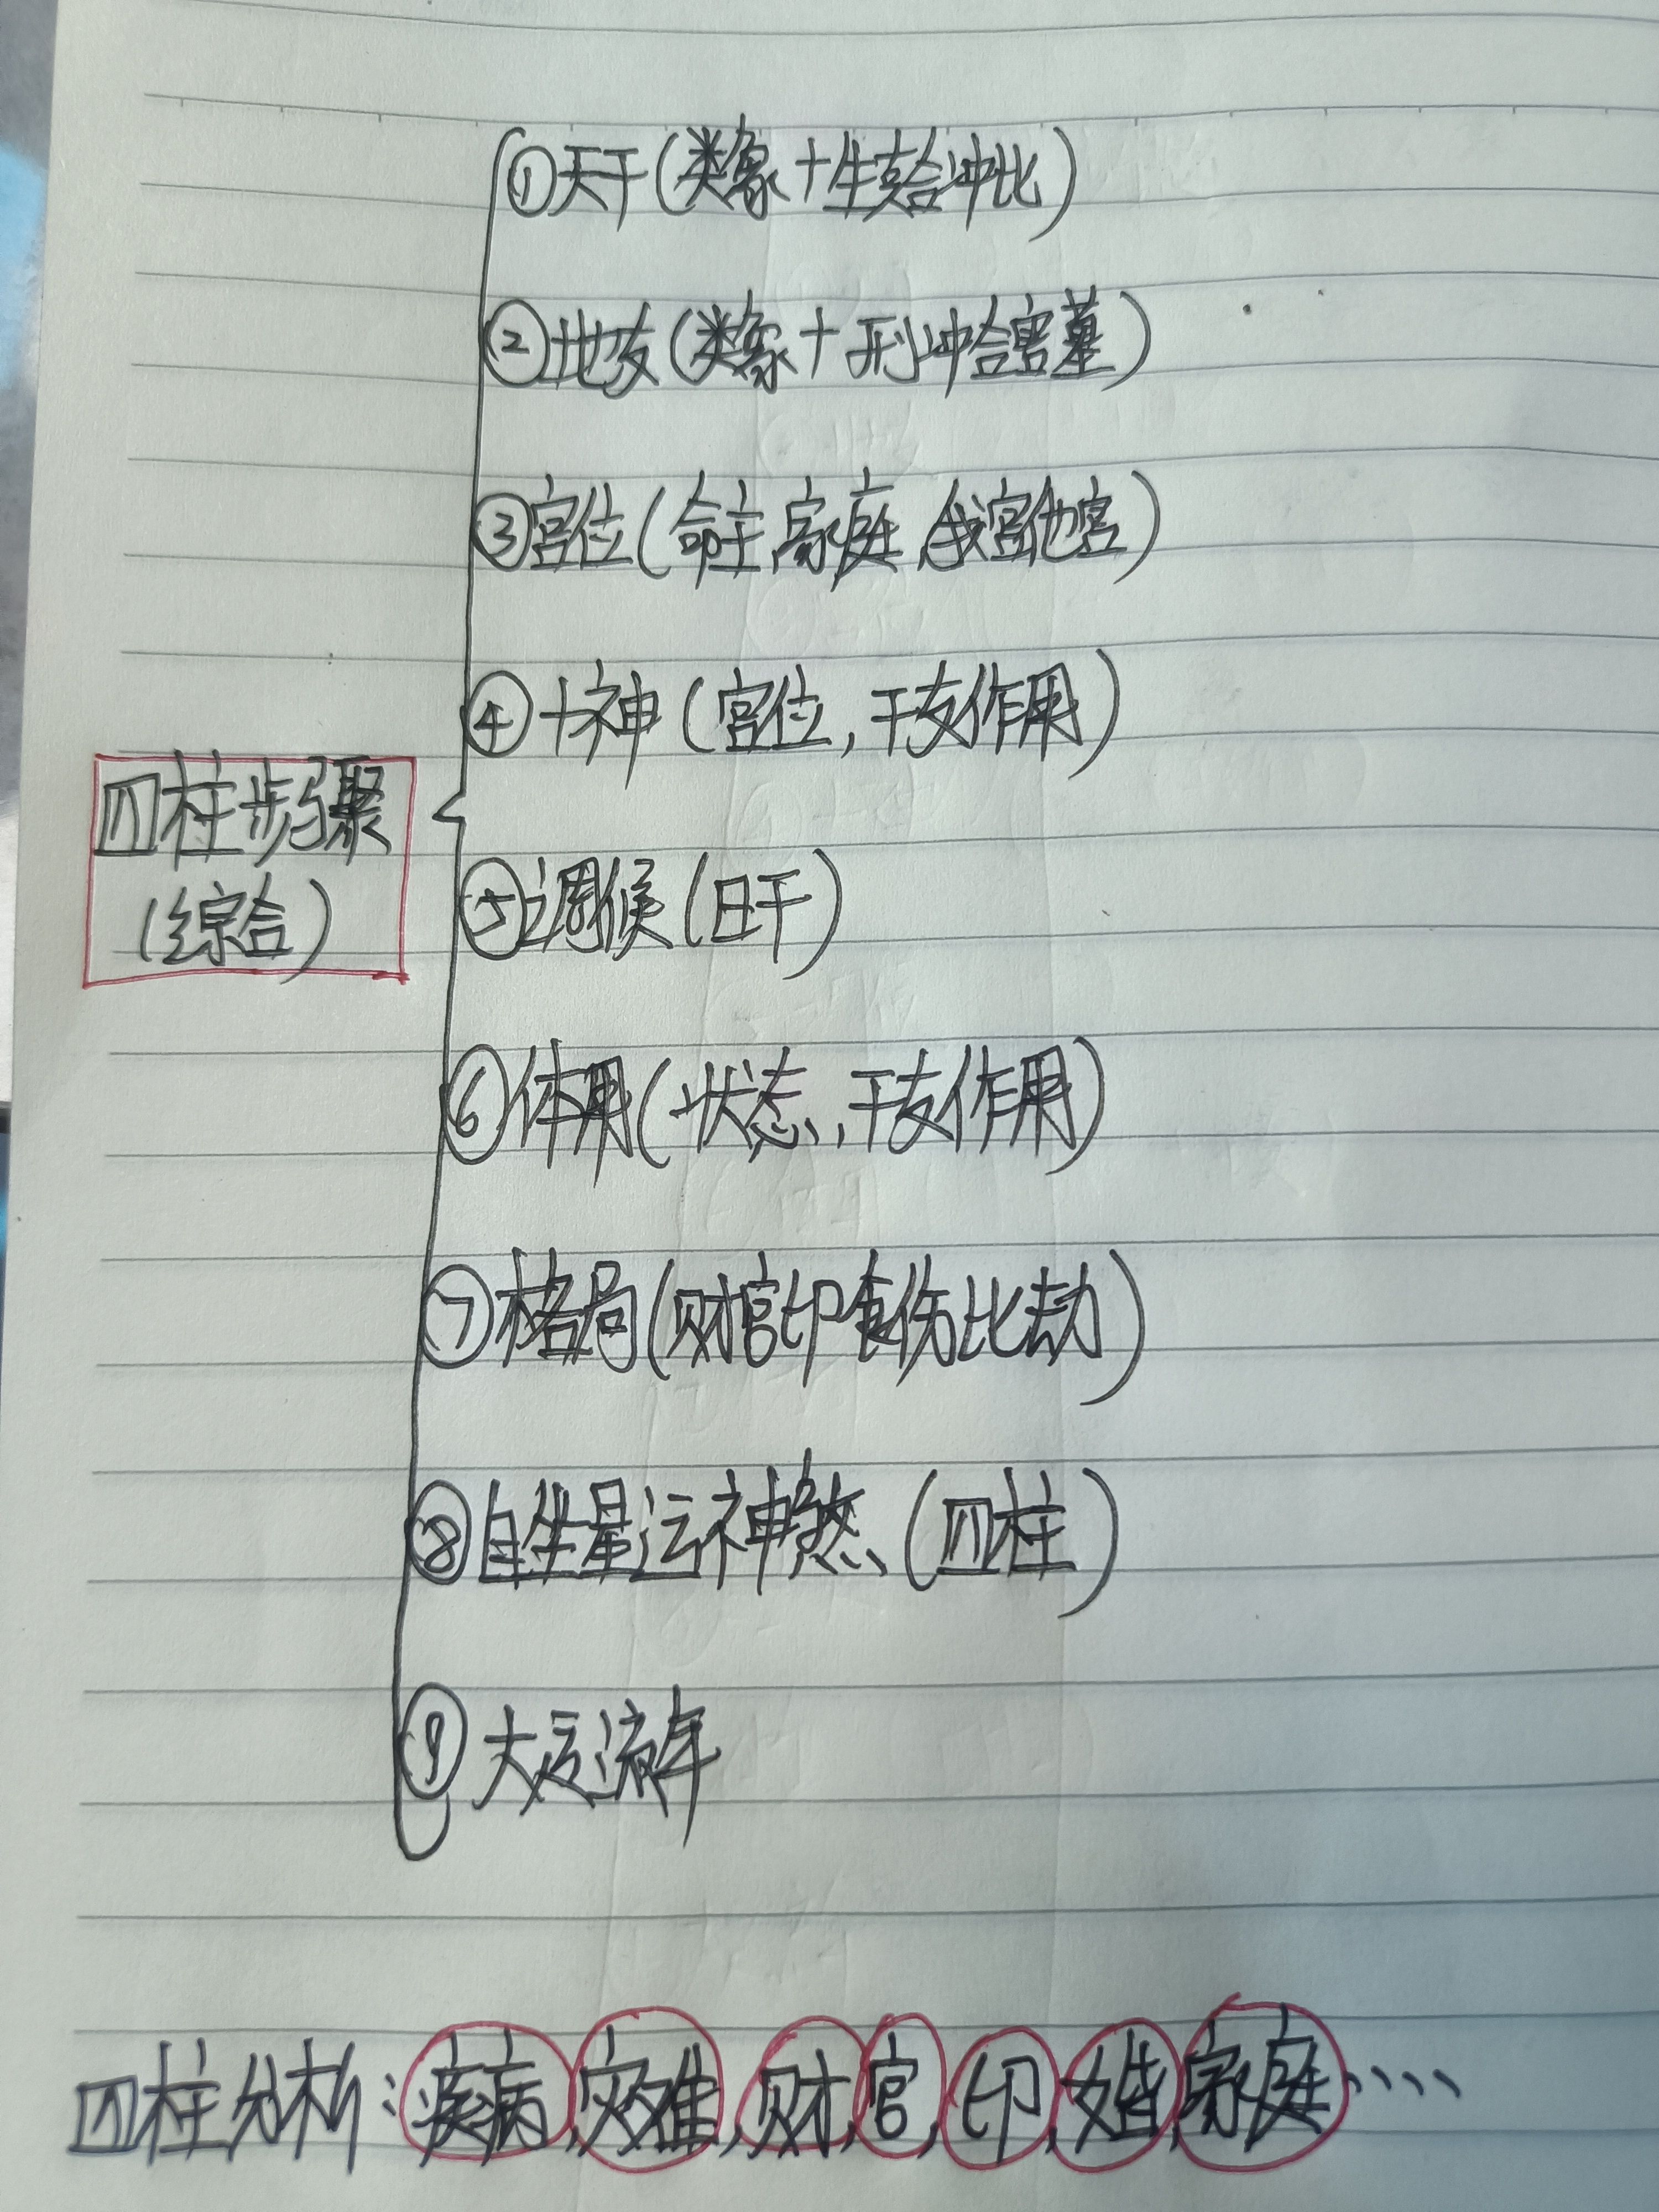 ①天干(类象+生克合冲比)
②地支(类象+刑冲合害墓)
③宫位(命主,家庭,我宫他宫)
④十神(宫位,干支作用)
四柱步骤
(综合)
⑤调候(日干)
⑥体用(状态,干支作用)
⑦格局(财官印食伤比劫)
⑧自坐星运神煞(四柱)
⑨大运流年
四柱分析:疾病,灾难,财,官,印,婚,家庭····